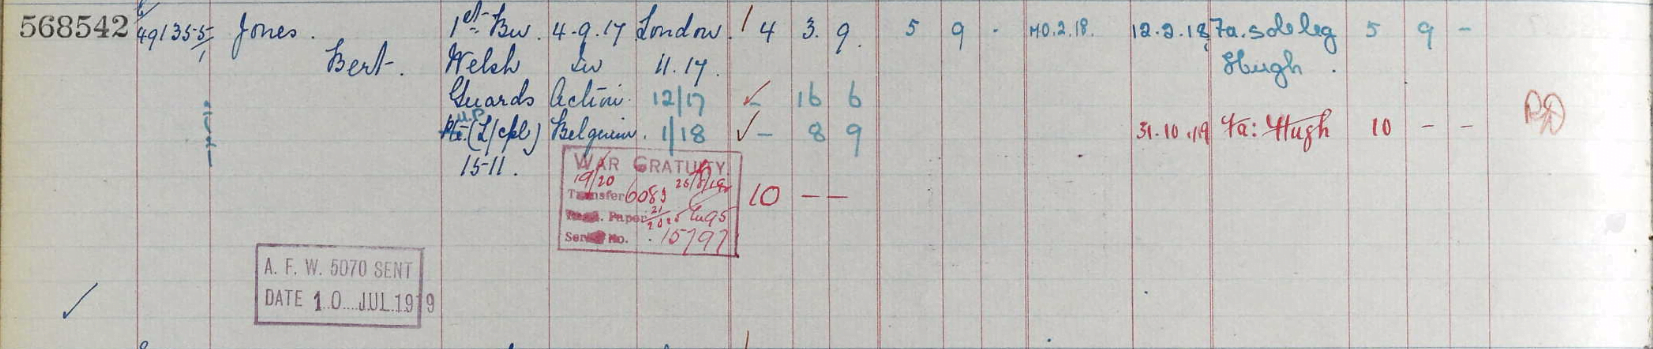 568542 491355/1 Jones. 1st Bn. 4.9.17 London. 4 3. 9. 5 9 - MO.2.18. 12.2.18 Fa. sole leg 5 9 -
Bert. Welsh in 11.17. Hugh.
Guards Action. 12/17 - 16 6
U.P.
Pte. (L/cpl) Belgium. 1/18 - 8 9 31.10.19 Fa: Hugh 10 - -
1511.
WAR GRATUITY
19/20 26/8/19
Transfer 6083 10 - -
Paper
Serial No. 15797
A. F. W. 5070 SENT
DATE 10 JUL.1919